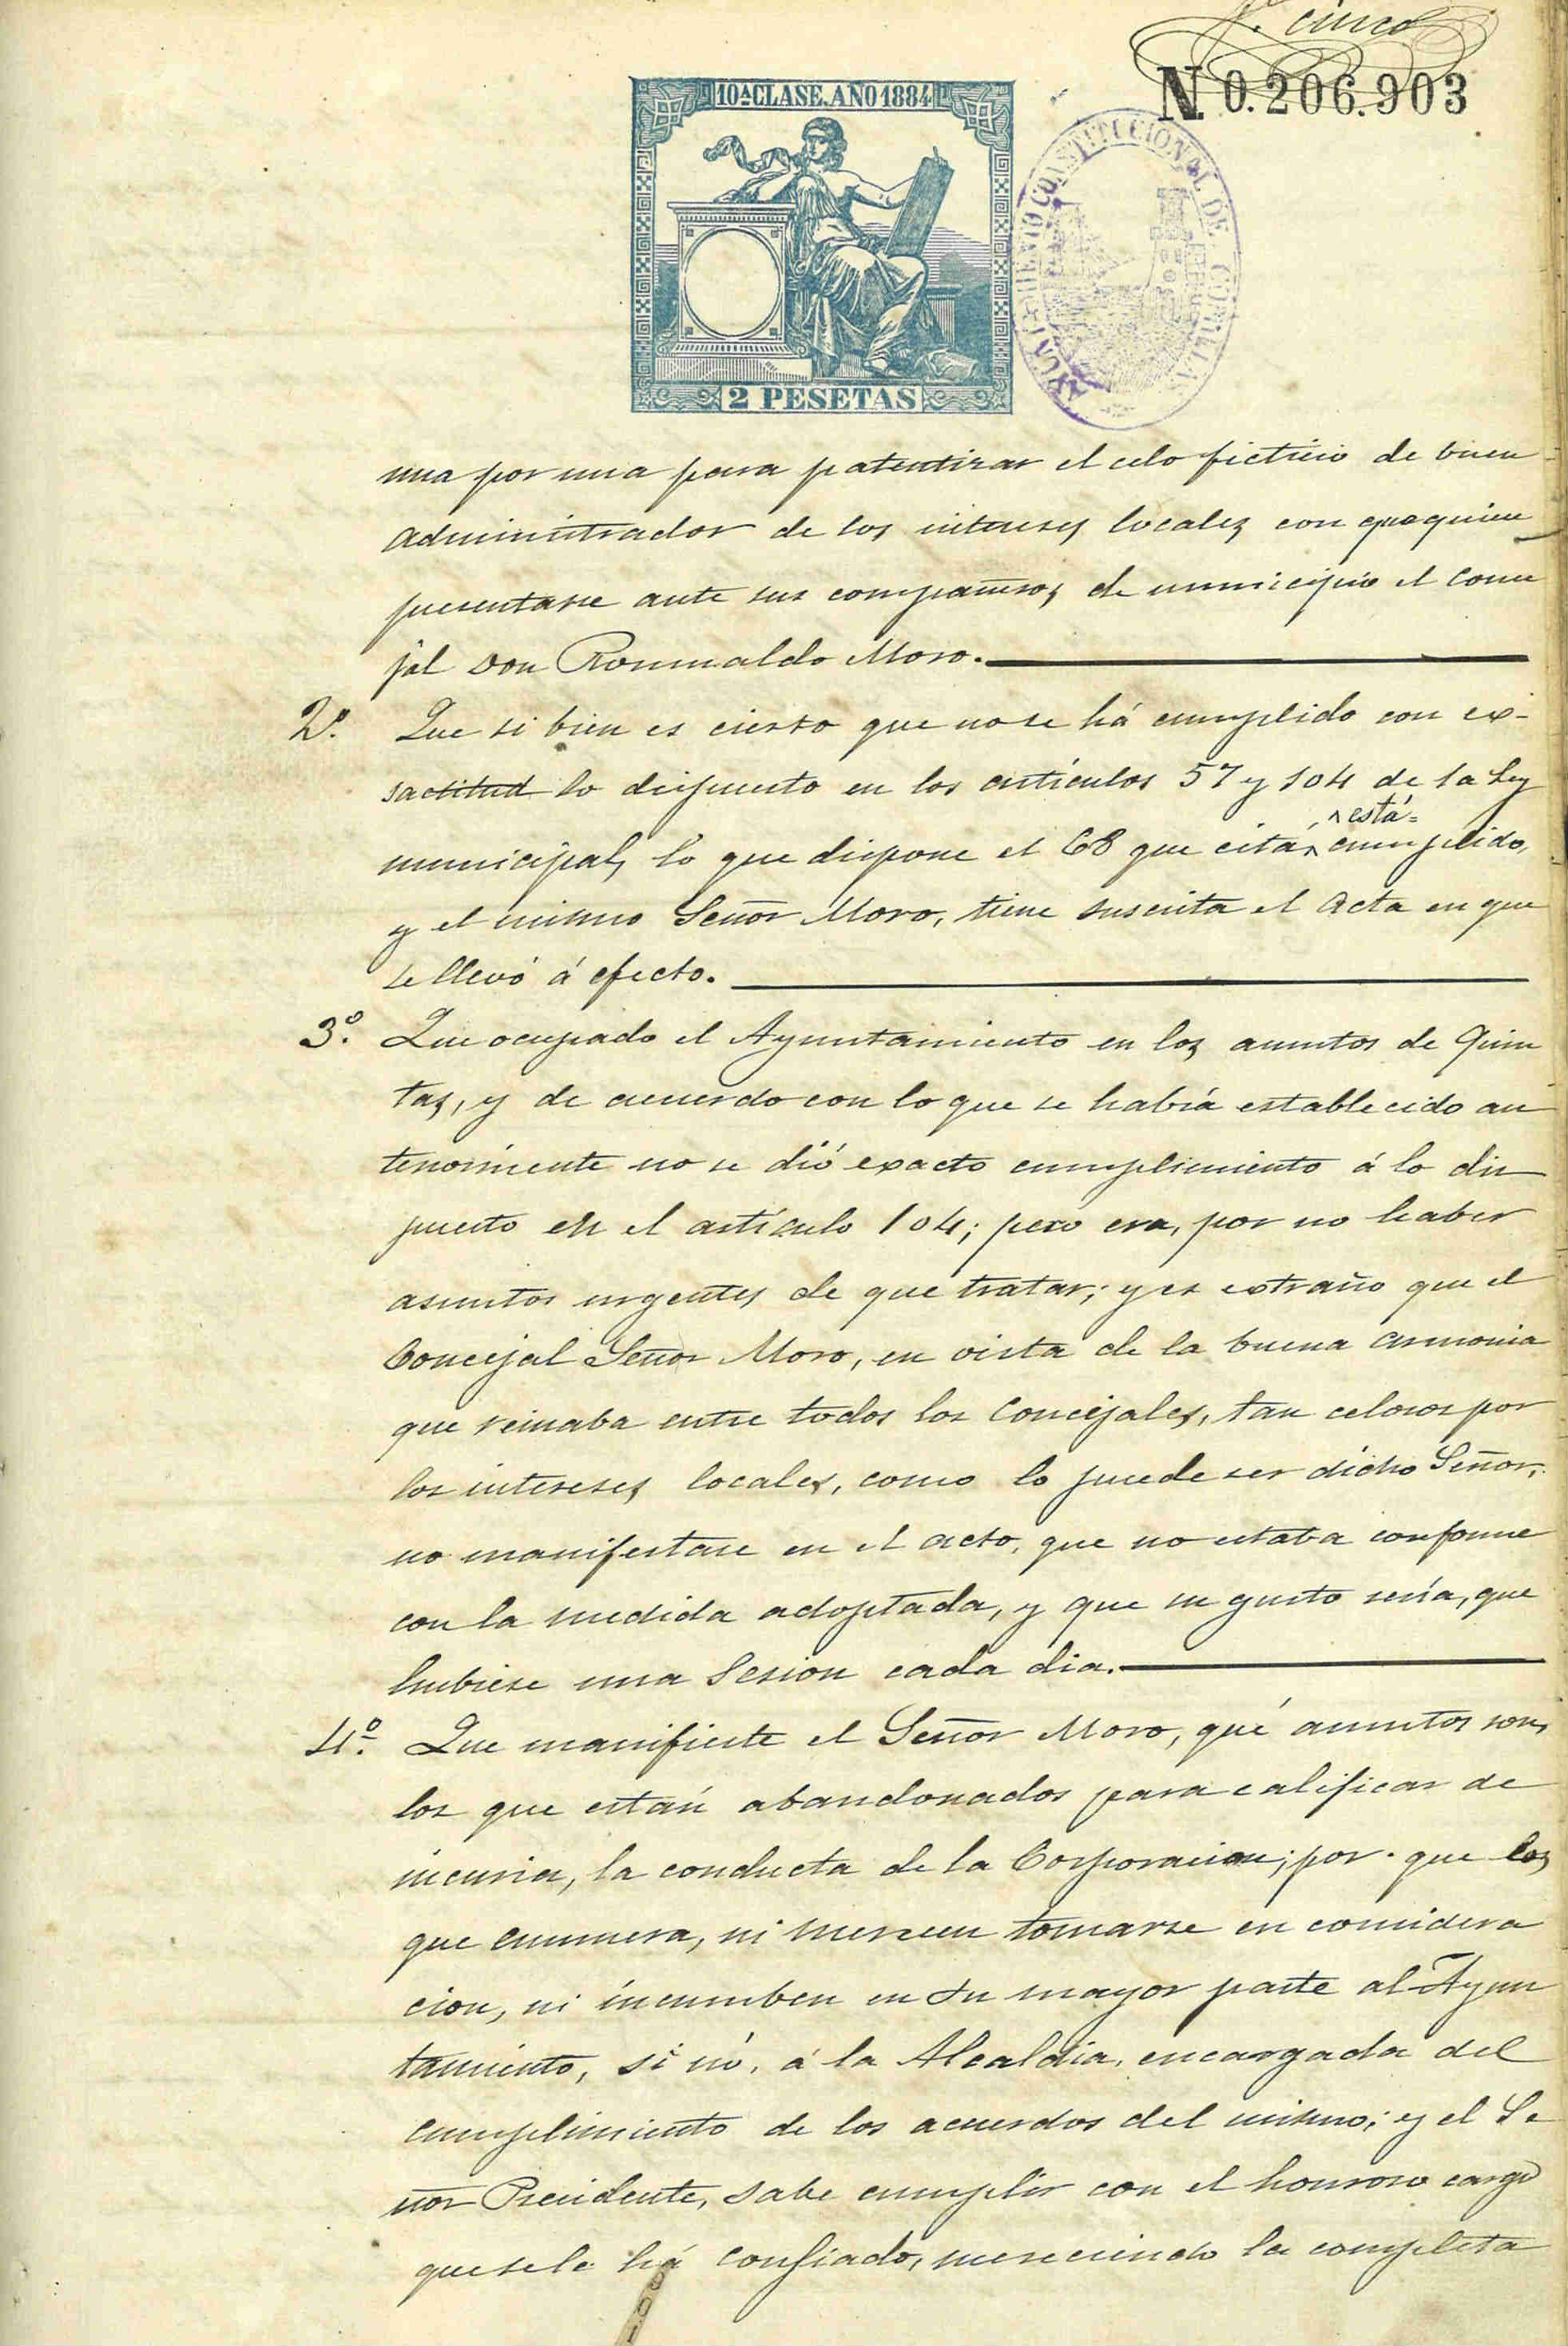 cinco
N 0.206.903
10ª CLASE. AÑO 1884
AYUNTAMIENTO CONSTITUCIONAL DE CUBILLAS
2 PESETAS
una por una para patentizar el celo ficticio de buen
administrador de los intereses locales con que quiere
presentarse ante sus compañeros de municipio el Conce
jal Don Romualdo Moro.
2º. Que si bien es cierto que no se há cumplido con ex-
sactitud lo dispuesto en los artículos 57 y 104 de la Ley
está=
municipal, lo que dispone el 68 que citá, cumplido,
y el mismo Señor Moro, tiene suscrita el Acta en que
se llevó á efecto.
3º. Que ocupado el Ayuntamiento en los asuntos de Quin
tas, y de acuerdo con lo que se había establecido an
teriormente no se dió exacto cumplimiento á lo dis
puesto en el artículo 104; pero era, por no haber
asuntos urgentes de que tratar; y es extraño que el
Concejal Señor Moro, en vista de la buena armonia
que reinaba entre todos los Concejales, tan celosos por
los intereses locales, como lo puede ser dicho Señor,
no manifestase en el acto, que no estaba conforme
con la medida adoptada, y que su gusto sería, que
hubiese una Sesion cada dia.
4º. Que manifieste el Señor Moro, qué asuntos son,
los que están abandonados para calificar de
incuria, la conducta de la Corporacion; por que los
que enumera, ni merecen tomarse en considera
cion, ni incumben en su mayor parte al Ayun
tamiento, si nó, á la Alcaldia, encargada del
cumplimiento de los acuerdos del mismo; y el Se
ñor Presidente, sabe cumplir con el honroso cargo
que se le há confiado, mereciendo la completa